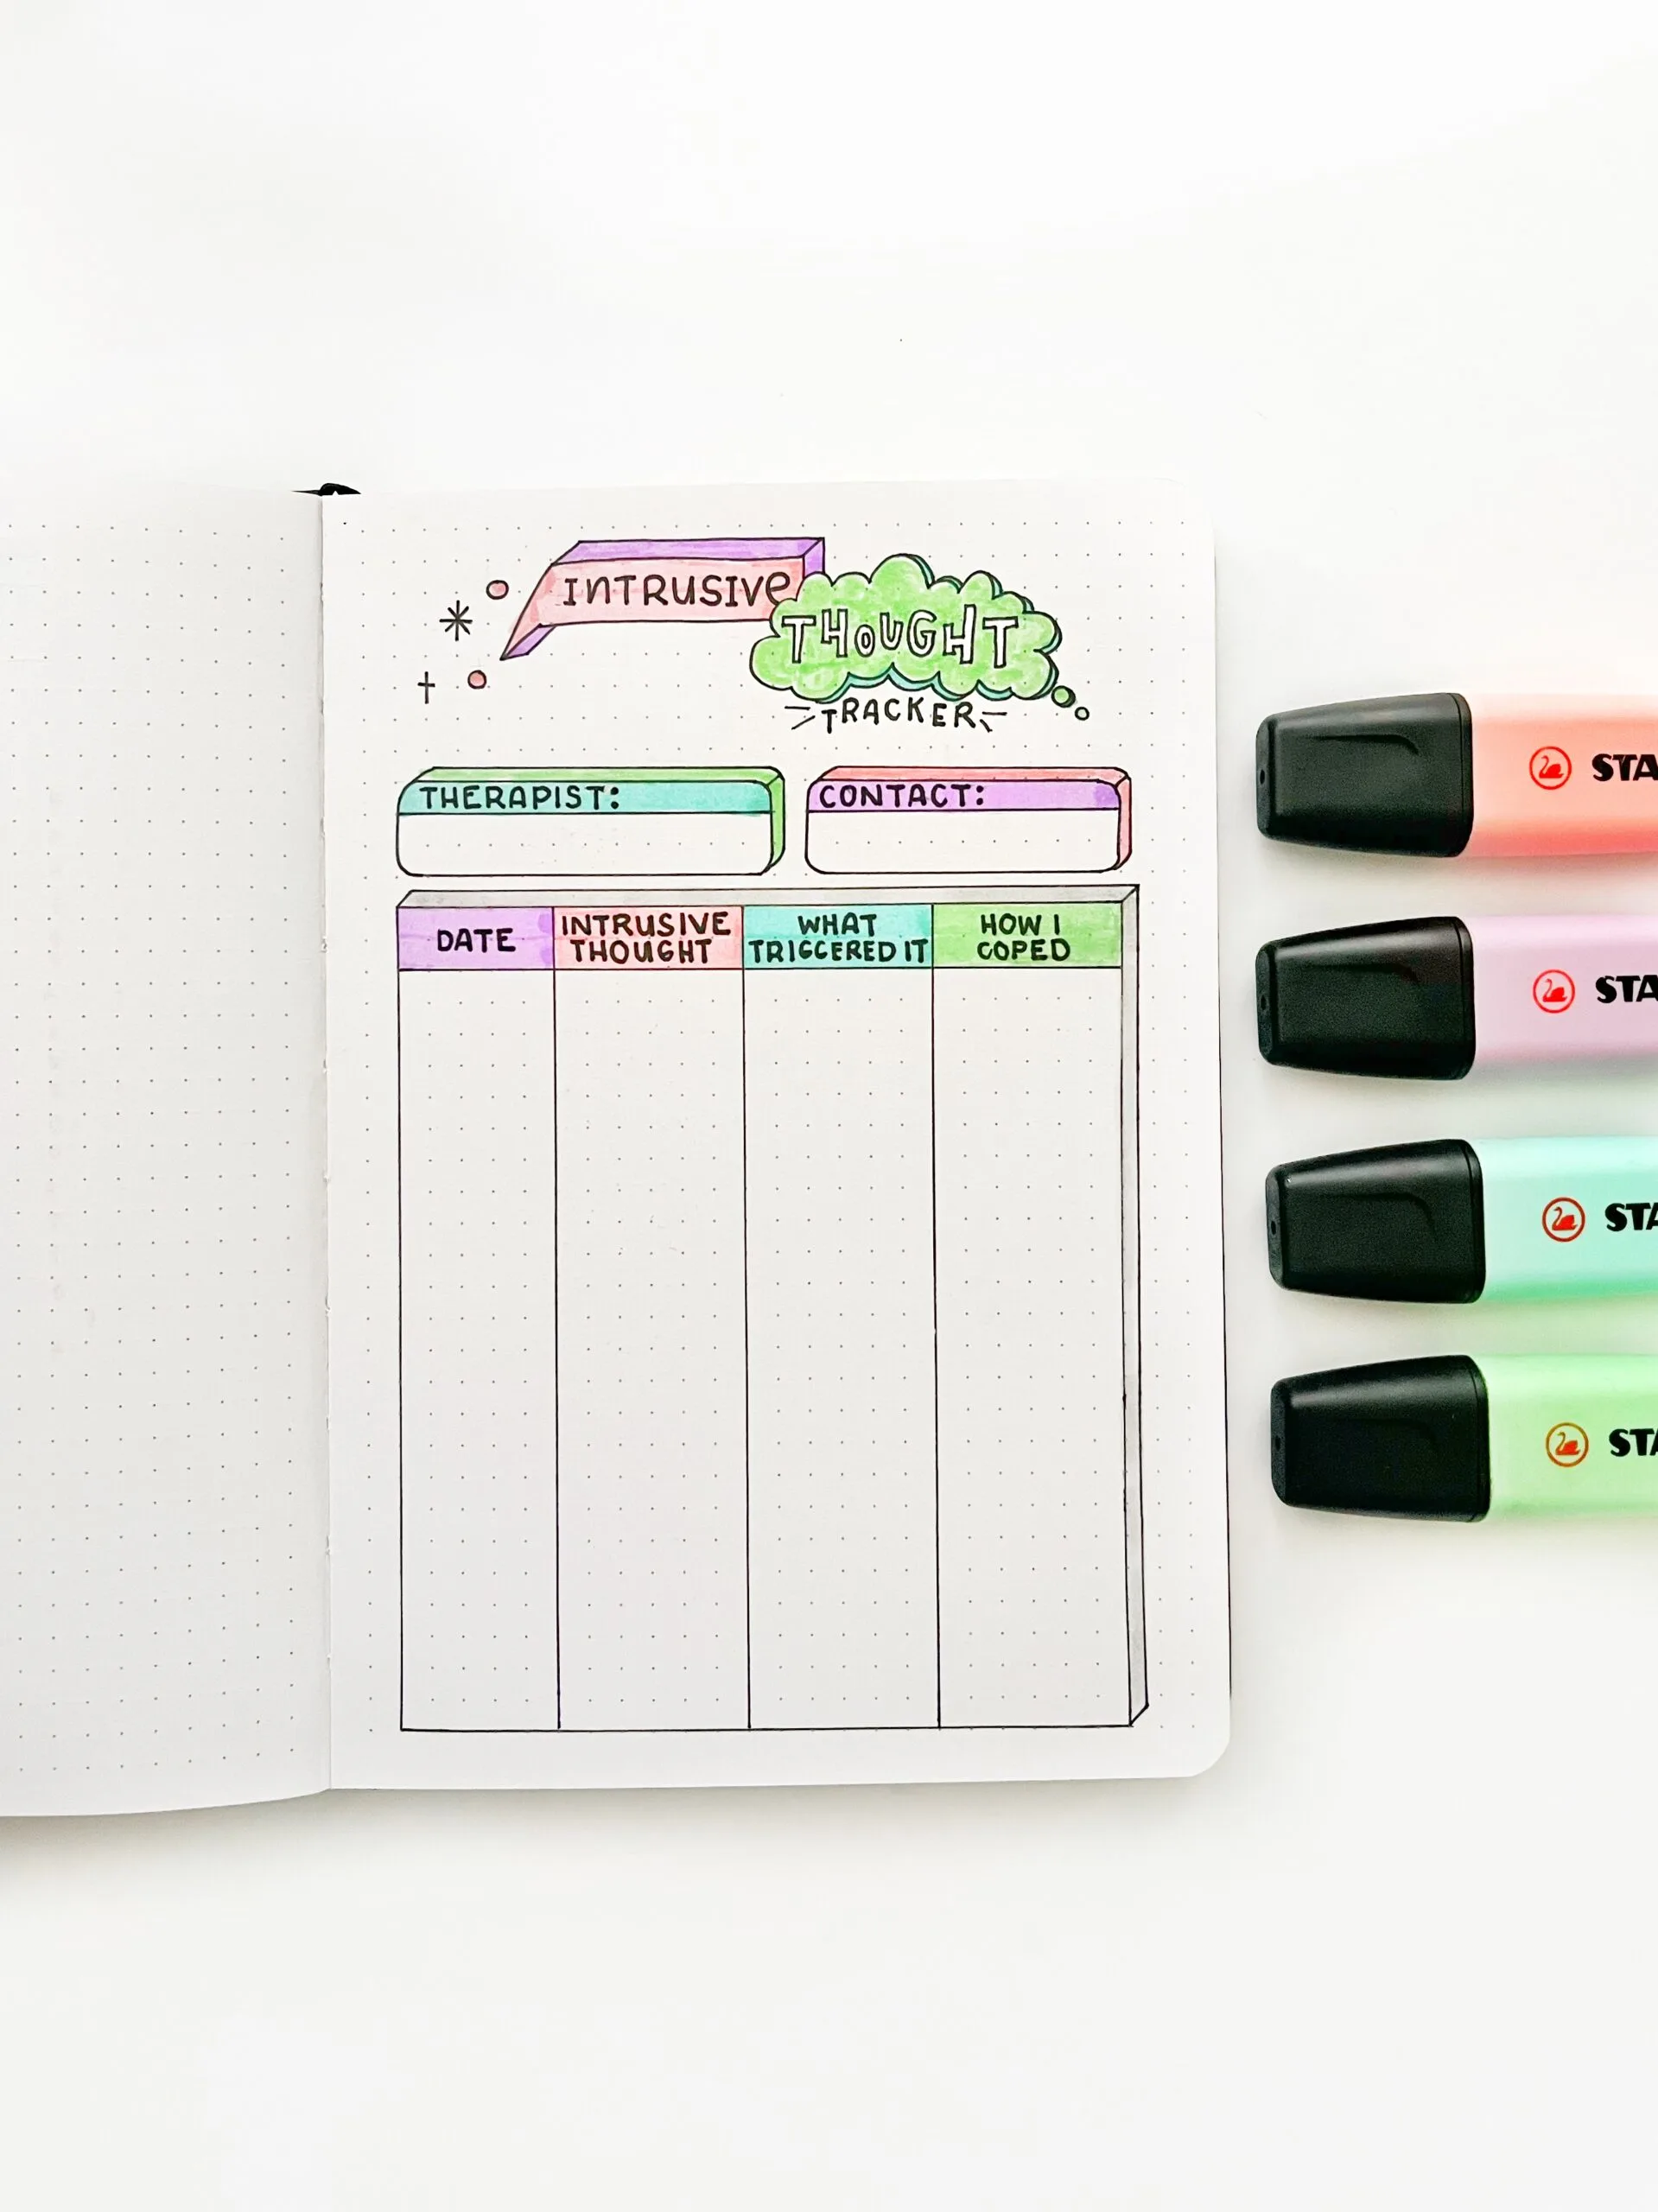 INTRUSIVE
THOUGHT
TRACKER
THERAPIST:
CONTACT:
DATE
INTRUSIVE
THOUGHT
WHAT
TRIGGERED IT
HOW I
COPED
STA
STA
STA
STA